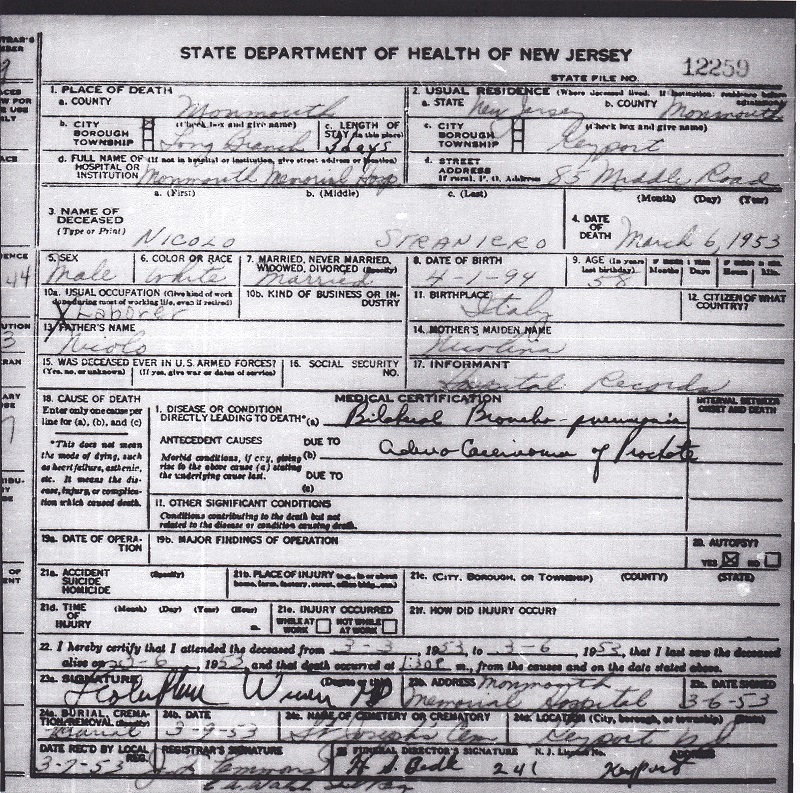 STATE DEPARTMENT OF HEALTH OF NEW JERSEY
STATE FILE NO. 12259
1. PLACE OF DEATH
a. COUNTY Monmouth
b. CITY BOROUGH TOWNSHIP (Check box and give name) Long Branch
c. LENGTH OF STAY (in this place) 3 days
d. FULL NAME OF HOSPITAL OR INSTITUTION (If not in hospital or institution, give street address or location) Monmouth Memorial Hosp
2. USUAL RESIDENCE (Where deceased lived. If institution: residence before admission)
a. STATE New Jersey b. COUNTY Monmouth
c. CITY BOROUGH TOWNSHIP (Check box and give name) Keyport
d. STREET ADDRESS If rural, P. O. Address 85 Middle Road
3. NAME OF DECEASED (Type or Print)
a. (First) b. (Middle) c. (Last)
NICOLO STRANIERO
4. DATE OF DEATH (Month) (Day) (Year) March 6, 1953
5. SEX Male
6. COLOR OR RACE White
7. MARRIED, NEVER MARRIED, WIDOWED, DIVORCED (Specify) Married
8. DATE OF BIRTH 4-1-94
9. AGE (In years last birthday) 58 Months Days Hours Min.
10a. USUAL OCCUPATION (Give kind of work done during most of working life, even if retired) X Laborer
10b. KIND OF BUSINESS OR INDUSTRY
11. BIRTHPLACE Italy
12. CITIZEN OF WHAT COUNTRY?
13. FATHER'S NAME Nicolo
14. MOTHER'S MAIDEN NAME Nicolina
15. WAS DECEASED EVER IN U.S. ARMED FORCES? (Yes, no, or unknown) (If yes, give war or dates of service)
16. SOCIAL SECURITY NO.
17. INFORMANT Hospital Records
18. CAUSE OF DEATH
Enter only one cause per line for (a), (b), and (c)
*This does not mean the mode of dying, such as heart failure, asthenia, etc. It means the disease, injury, or complication which caused death.
MEDICAL CERTIFICATION
INTERVAL BETWEEN ONSET AND DEATH
1. DISEASE OR CONDITION DIRECTLY LEADING TO DEATH* (a) Bilateral Broncho pneumonia
ANTECEDENT CAUSES
Morbid conditions, if any, giving rise to the above cause (a) stating the underlying cause last.
DUE TO (b) Adeno Carcinoma of Prostate
DUE TO (c)
11. OTHER SIGNIFICANT CONDITIONS
Conditions contributing to the death but not related to the disease or condition causing death.
19a. DATE OF OPERATION
19b. MAJOR FINDINGS OF OPERATION
20. AUTOPSY? YES NO
21a. ACCIDENT SUICIDE HOMICIDE (Specify)
21b. PLACE OF INJURY (e.g., in or about home, farm, factory, street, office bldg., etc.)
21c. (CITY, BOROUGH, OR TOWNSHIP) (COUNTY) (STATE)
21d. TIME OF INJURY (Month) (Day) (Year) (Hour) m.
21e. INJURY OCCURRED WHILE AT WORK NOT WHILE AT WORK
21f. HOW DID INJURY OCCUR?
22. I hereby certify that I attended the deceased from 3-3, 1953, to 3-6, 1953, that I last saw the deceased
alive on 3-6, 1953, and that death occurred at 1:30P m., from the causes and on the date stated above.
23a. SIGNATURE (Degree or title) MD
23b. ADDRESS Monmouth Memorial Hospital
23c. DATE SIGNED 3-6-53
24a. BURIAL, CREMATION, REMOVAL (Specify) Burial
24b. DATE 3-9-53
24c. NAME OF CEMETERY OR CREMATORY St Josephs Cem
24d. LOCATION (City, borough, or township) (State) Keyport NJ
DATE REC'D BY LOCAL REG. 3-7-53
REGISTRAR'S SIGNATURE
25. FUNERAL DIRECTOR'S SIGNATURE N. J. License No. ADDRESS
H. S. Bedle 241 Keyport